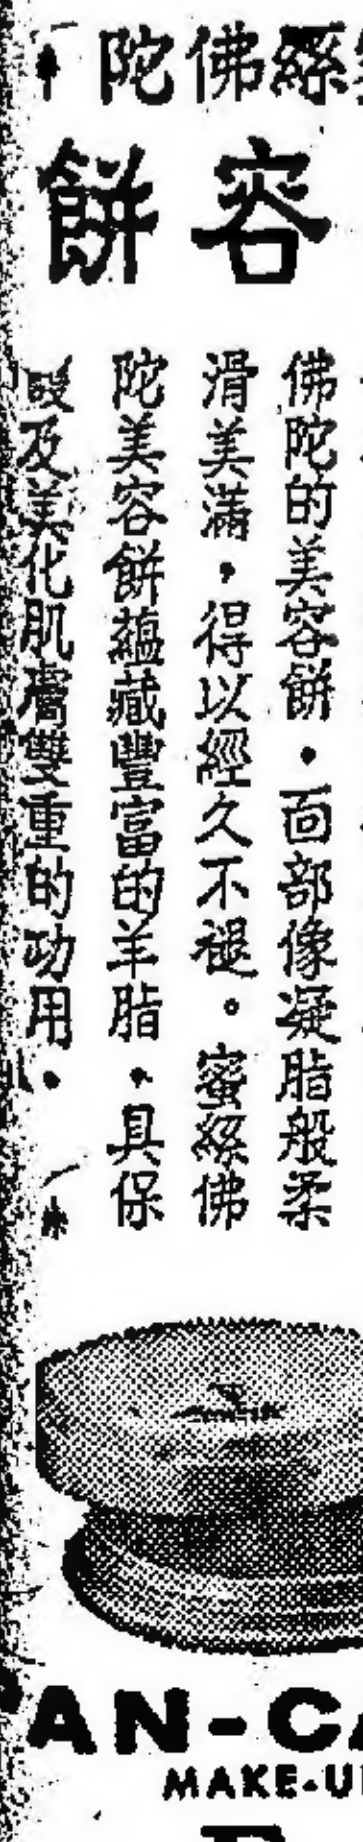 絲佛陀
容餅
佛陀的美容餅，面部像凝脂般柔
滑美滿，得以經久不褪。蜜絲佛
陀美容餅蘊藏豐富的羊脂，具保
護及美化肌膚雙重的功用．
PAN-CA
MAKE-U